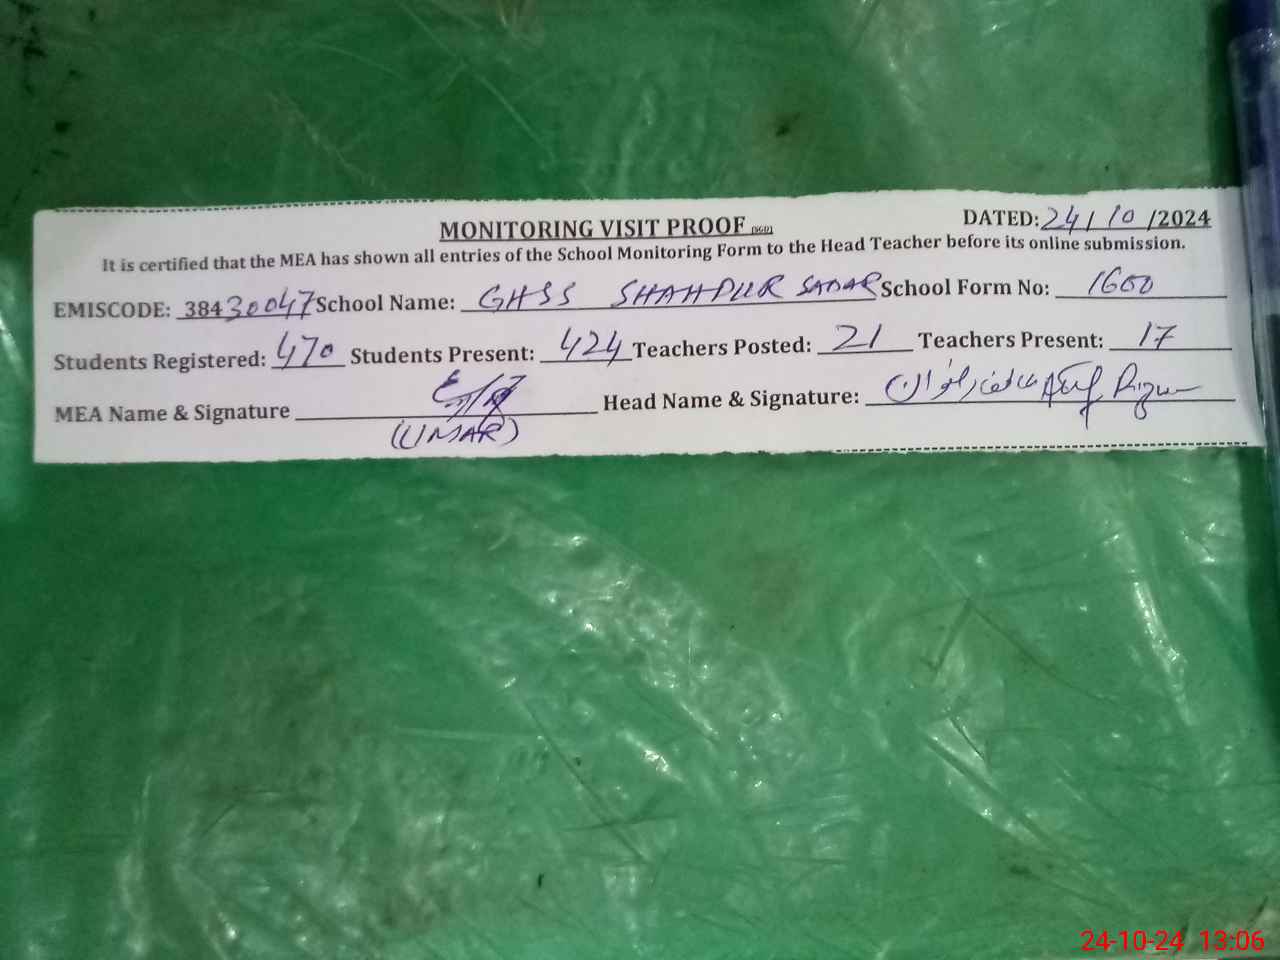 MONITORING VISIT PROOF (SGD) DATED: 24/10/2024
It is certified that the MEA has shown all entries of the School Monitoring Form to the Head Teacher before its online submission.
EMISCODE: 38430047 School Name: GHSS SHAHPUR SADAR School Form No: 1600
Students Registered: 470 Students Present: 424 Teachers Posted: 21 Teachers Present: 17
MEA Name & Signature Head Name & Signature:
(UMAR)
24-10-24 13:06